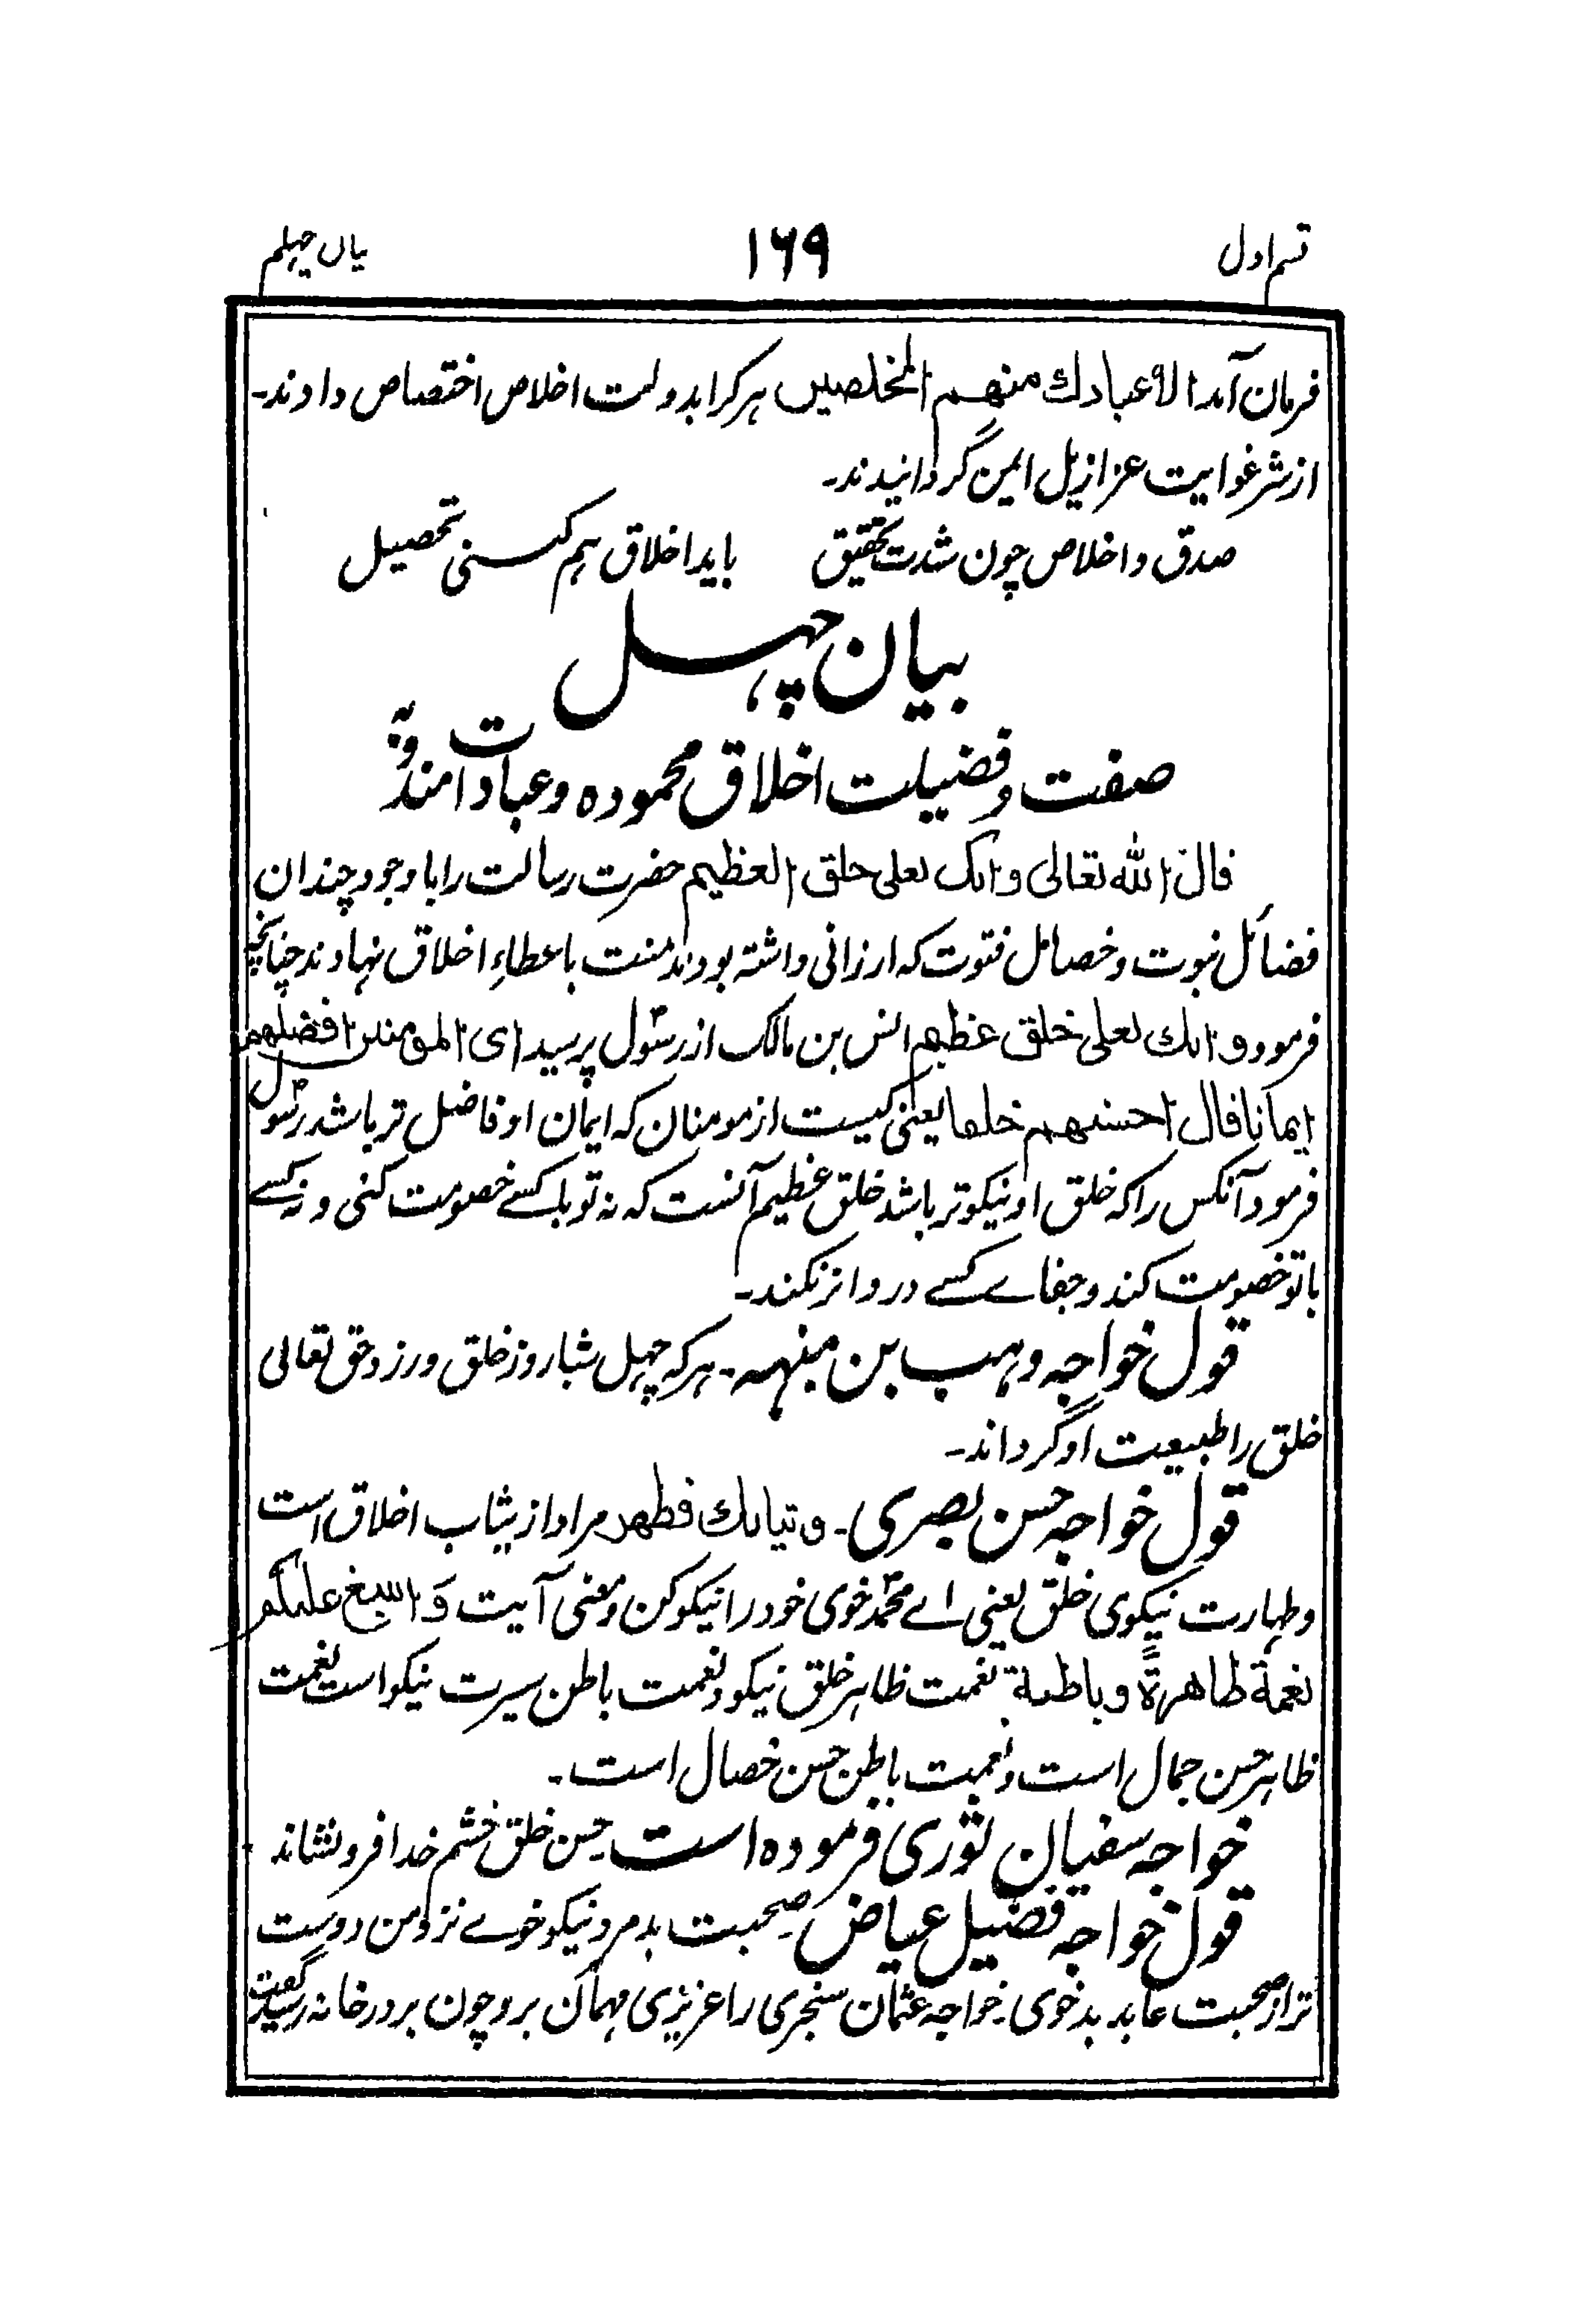 قسم اول ۱۶۹ بیان چہلم
فرمان آمد الا عبادك منهم المخلصین ہر کرا بدولت اخلاص اختصاص دادند۔
از شر غوایت عزازیل ایمن گردانیدند۔
صدق و اخلاص چون شدت تحقیق باید اخلاق ہم کنی تحصیل
بیان چہل
صفت و فضیلت اخلاق محمودہ و عبادات
قال الله تعالی وانك لعلی خلق العظیم حضرت رسالت را با وجود چندان
فضائل نبوت و خصائل فتوت کہ ارزانی داشتہ بودند منت باعطاء اخلاق نہادند چنانچہ
فرمود وانك لعلی خلق عظیم انس بن مالک از رسول پرسید ای المومنین افضلهم
ایمانا قال احسنهم خلقا یعنی کیست از مومنان کہ ایمان او فاضل تر باشد رسول
فرمود آنکس را کہ خلق او نیکوتر باشد خلق عظیم آنست کہ نہ تو بکسے خصومت کنی و نہ کسے
باتو خصومت کند و جفاے کسے در و اثر نکند۔
قول خواجہ وہب بن منبہ۔ ہر کہ چہل شبا روز خلق ورزد حق تعالی
خلق را طبیعت او گرداند۔
قول خواجہ حسن بصری۔ و ثیابك فطهر مراد از ثیاب اخلاق است
و طہارت نیکوی خلق یعنی اے محمدؐ خوی خود را نیکو کن و معنی آیت وَ اسبغ علیکم
نعمة ظاهرةً وباطنة نعمت ظاہر خلق نیکو و نعمت باطن سیرت نیکو است نعمت
ظاہر حسن جمال است و نعمت باطن حسن خصال است۔
خواجہ سفیان ثوری فرمودہ است۔ حسن خلق خشم خدا فرو نشاند
قول خواجہ فضیل عیاض۔ صحبت بد مرد نیکو خوے نزد من دوست
تر از صحبت عابد بدخوی۔ خواجہ عثمان سنجری را عزیزی مہمان برد چون بر در خانہ رسید گفت